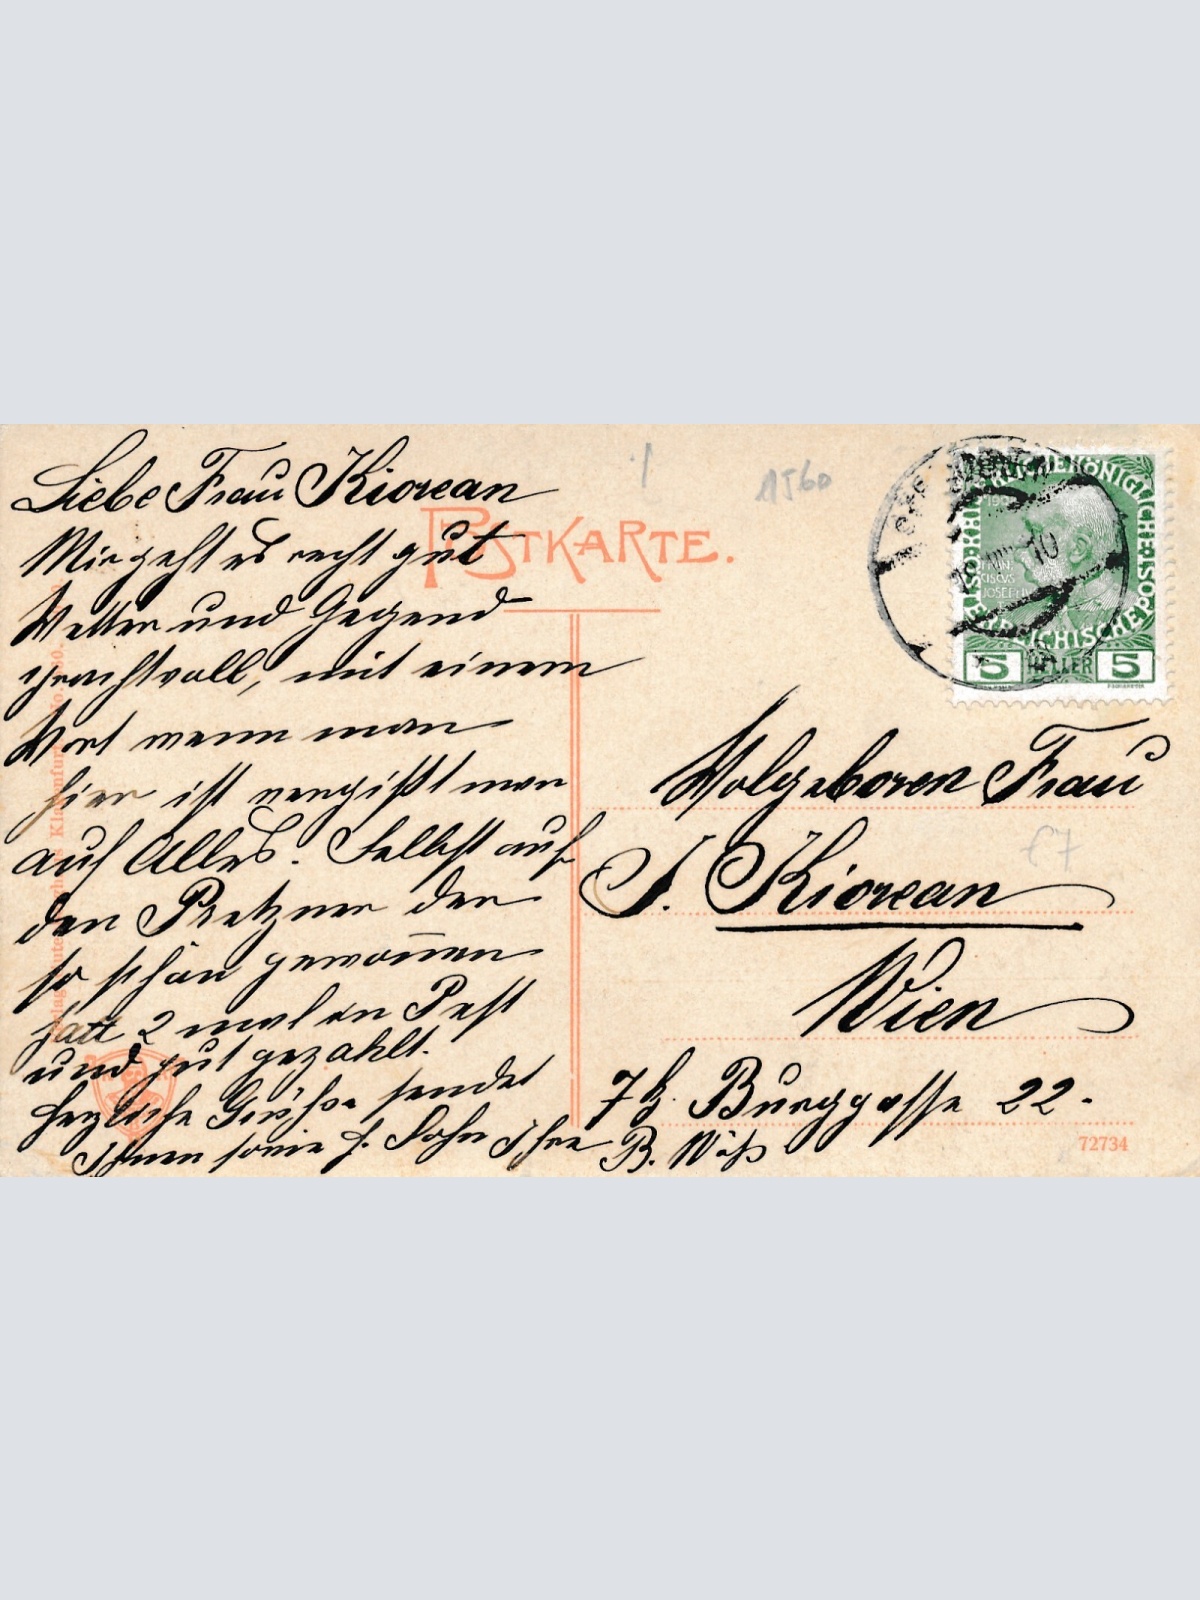 Liebe Frau Kiorean
Mir geht es recht gut
Wetter und Gegend
prachtvoll, mit einem
Wort wenn man
hier ist vergißt man
auf Alles. Selbst auf
den Pretzner der
so schön gewonnen
hatt 2 mal en Pest
und gut gezahlt.
Herzliche Grüße sendet
Ihnen sowie H. Sohn Ihre B. Wäß
POSTKARTE.
1560
5 HELLER 5
10
Wolgeboren Frau
J. Kiorean
£7
Wien
7b. Burggasse 22.
72734